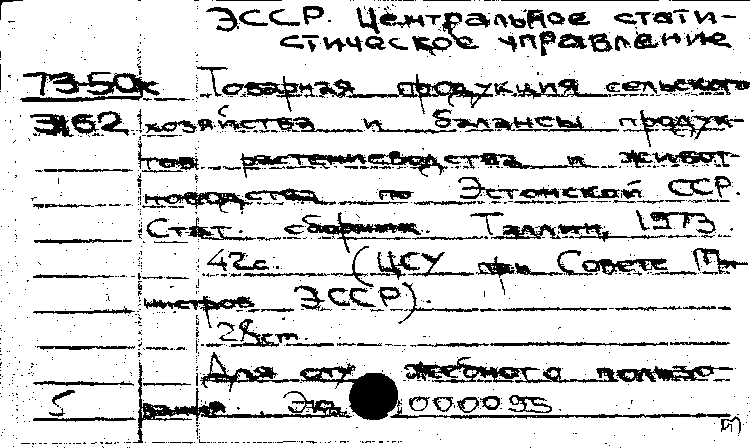 ЭССР. Центральное стати-
стическое управление
73-50к Товарная продукция сельского
3162 хозяйства и балансы продук-
тов растениеводства и живот-
новодства по Эстонской ССР.
Стат. сборник. Таллин, 1973.
42с. (ЦСУ при Совете Ми-
нистров ЭССР).
28см.
Для служебного пользо-
5 вания. Экз. 000095